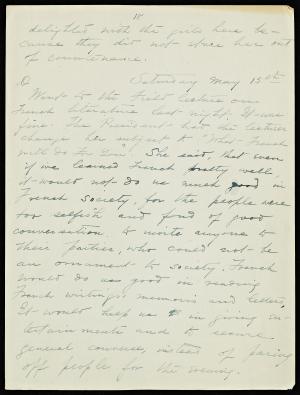 18
delighted with the girls here be-
cause they did not stare her out
of countenance.
Saturday May 15th
Went to the first lecture on
French literature last night. It was
fine. The President had the lecturer
change her subject to "What French
will do for You". She said, that even
if we learned French pretty well
it would not do us much good in
French society, for the people were
too selfish and fond of good
conversation, to invite anyone to
their parties, who could not be
an ornament to society. French
would do us good in reading
French writings, memoirs and letters.
It would help us in giving en-
tertainments and to secure
general converse, instead of pairing
off people for the evening.